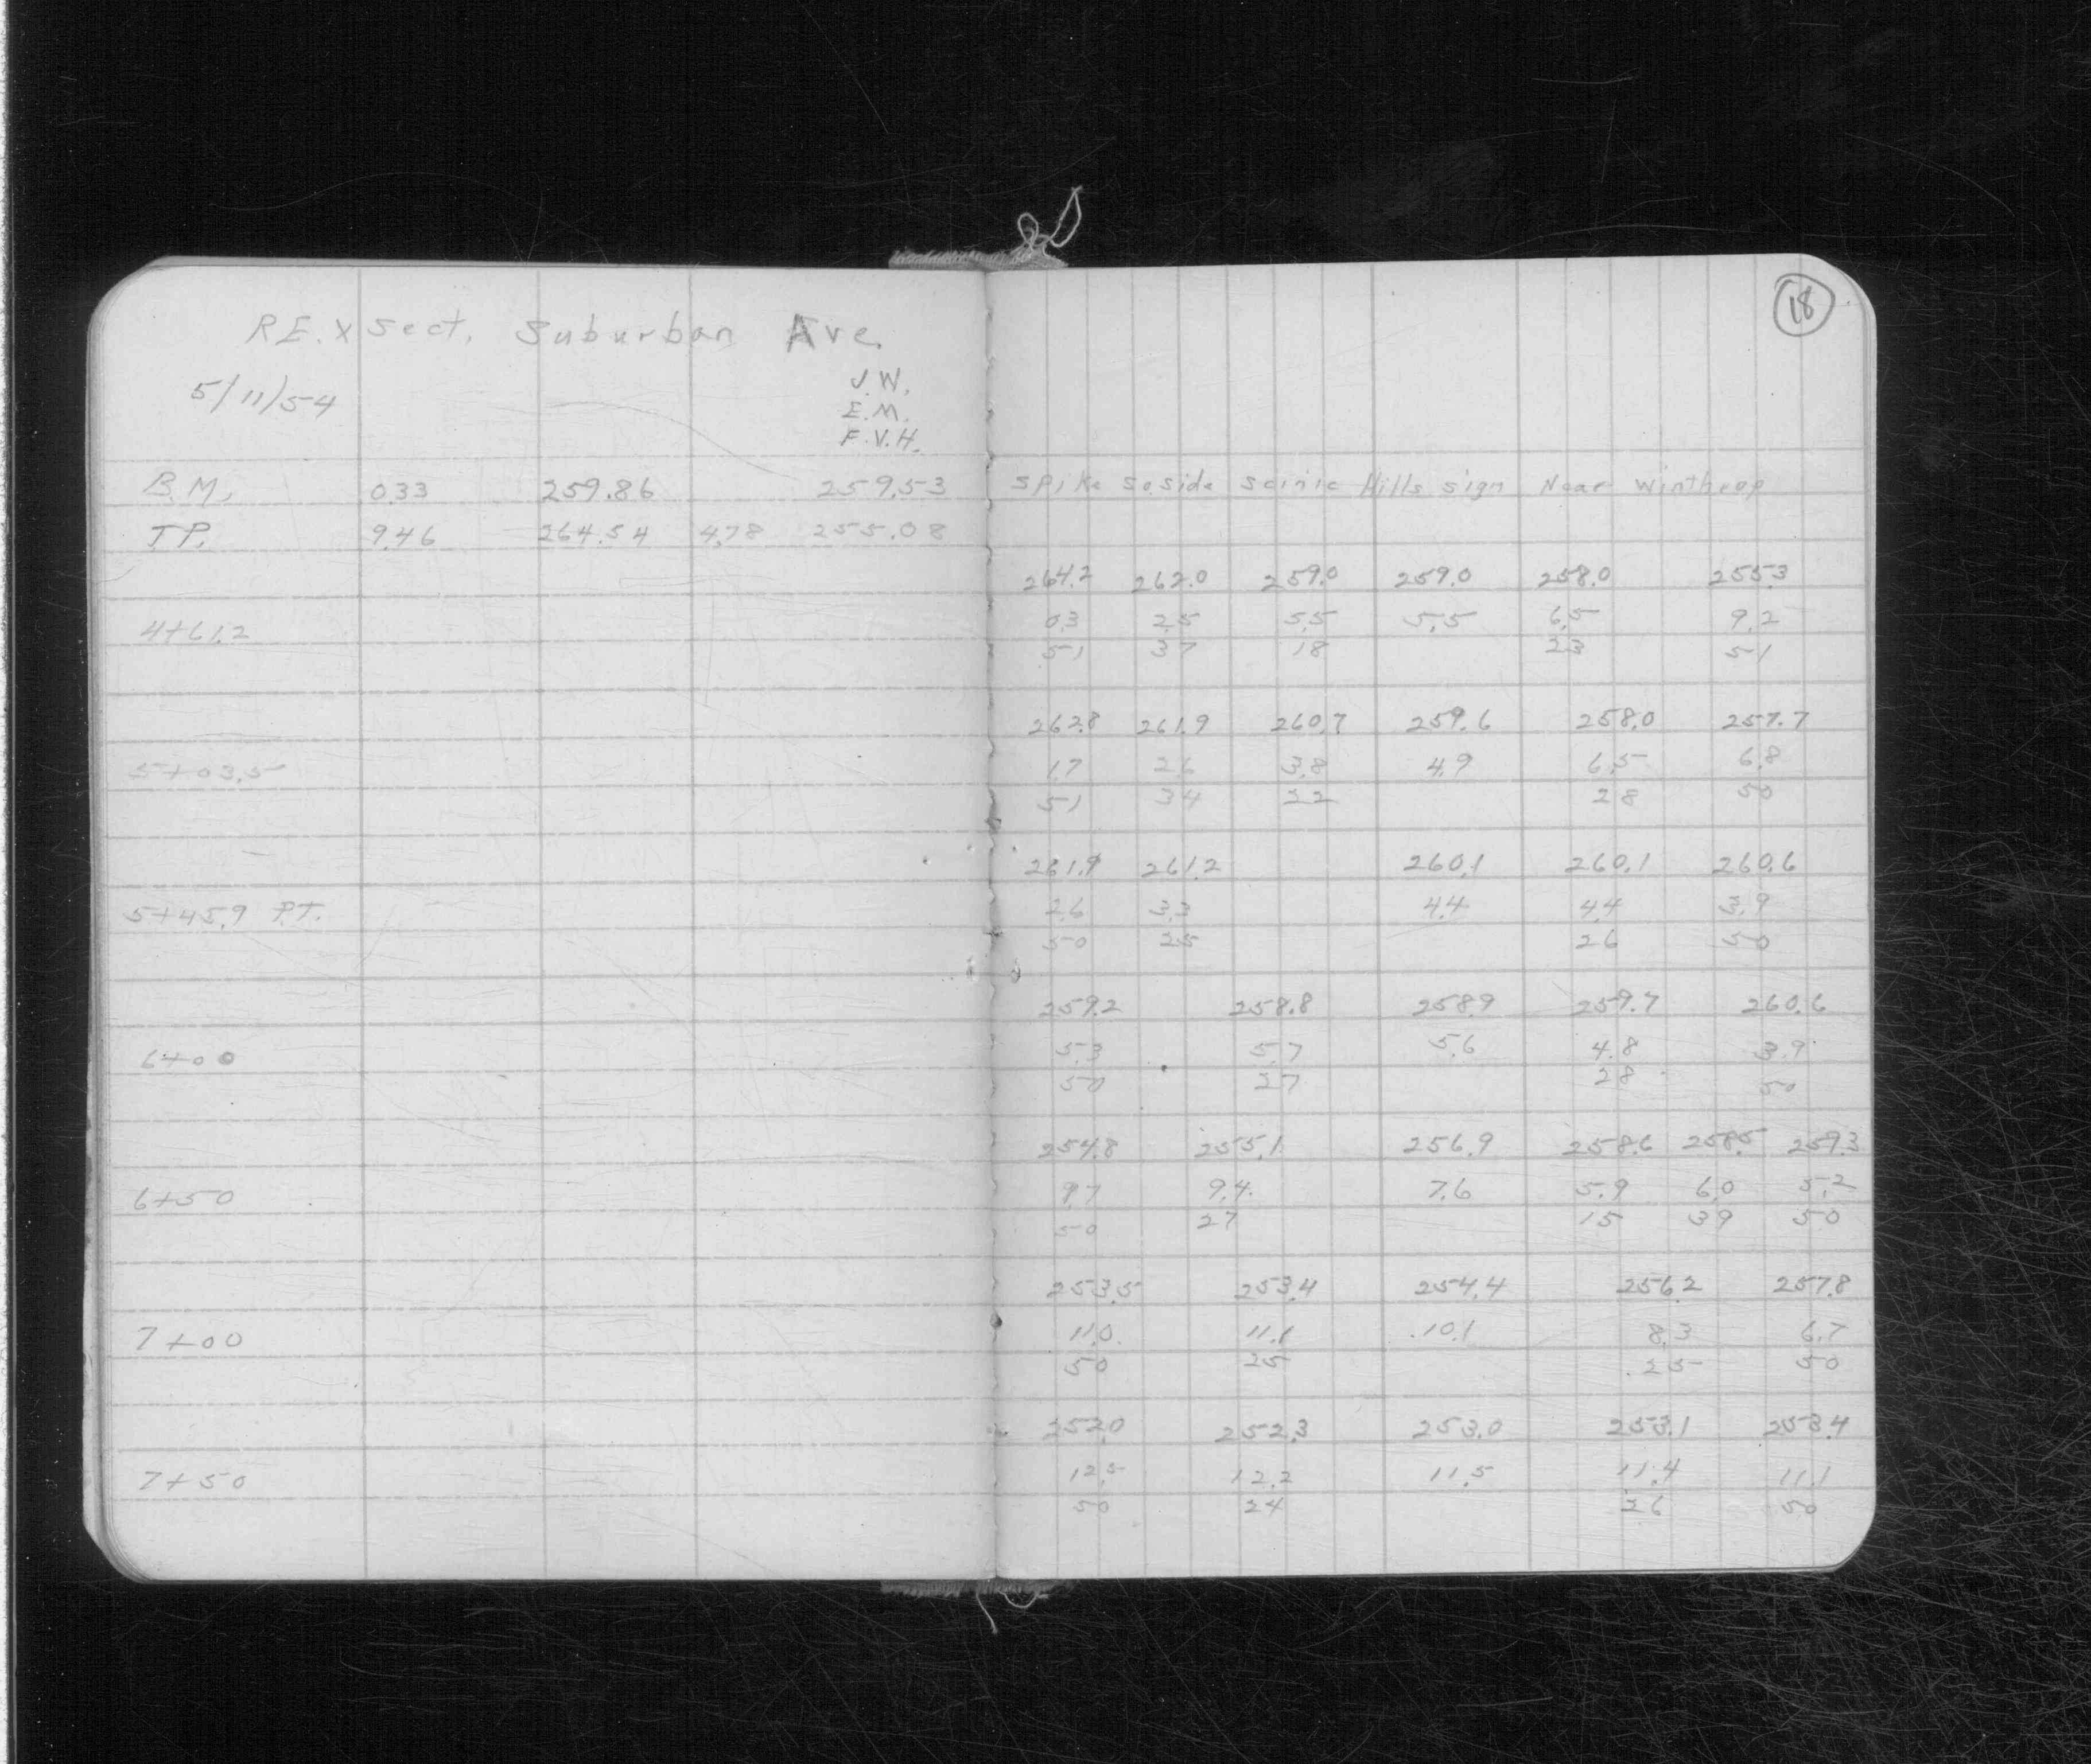 18
RE. X Sect. Suburban Ave.
5/11/54
J.W.
E.M.
F.V.H.
B.M. 0.33 259.86 259.53 Spike So. side Scinic Hills sign Near Winthrop
T.P. 9.46 264.54 4.78 255.08
264.2 262.0 259.0 259.0 258.0 255.3
4+61.2 0.3 2.5 5.5 5.5 6.5 9.2
51 37 18 23 51
262.8 261.9 260.7 259.6 258.0 257.7
5+03.5 1.7 2.6 3.8 4.9 6.5 6.8
51 34 22 28 50
261.9 261.2 260.1 260.1 260.6
5+45.9 P.T. 2.6 3.3 4.4 4.4 3.9
50 25 26 50
259.2 258.8 258.9 259.7 260.6
6+00 5.3 5.7 5.6 4.8 3.9
50 27 28 50
254.8 255.1 256.9 258.6 258.5 259.3
6+50 9.7 9.4 7.6 5.9 6.0 5.2
50 27 15 39 50
253.5 253.4 254.4 256.2 257.8
7+00 11.0 11.1 10.1 8.3 6.7
50 25 25 50
252.0 252.3 253.0 253.1 253.4
7+50 12.5 12.2 11.5 11.4 11.1
50 24 26 50